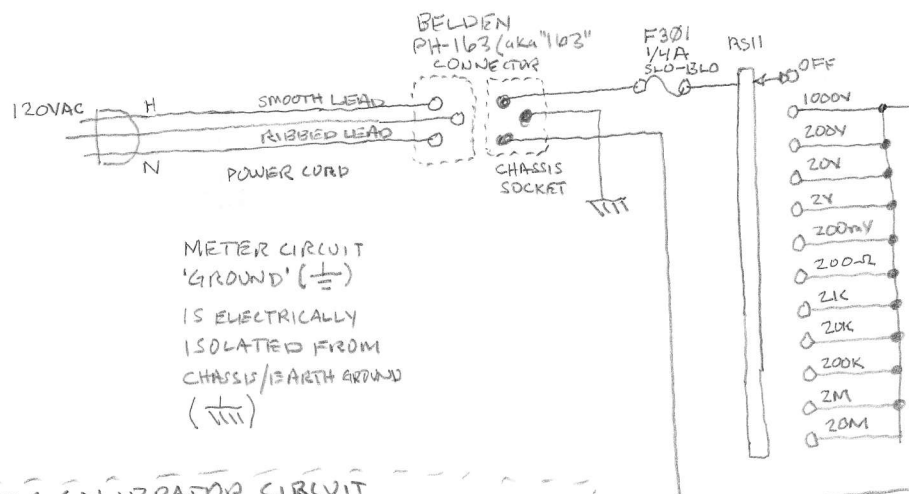 BELDEN
PH-163 (aka "163"
CONNECTOR
F301
1/4A
SLO-BLO
RS11
OFF
120VAC
H
SMOOTH LEAD
RIBBED LEAD
N
POWER CORD
CHASSIS
SOCKET
1000V
200V
20V
2V
200mV
200Ω
2K
20K
200K
2M
20M
METER CIRCUIT
'GROUND' (⏚)
IS ELECTRICALLY
ISOLATED FROM
CHASSIS/EARTH GROUND
CIRCUIT